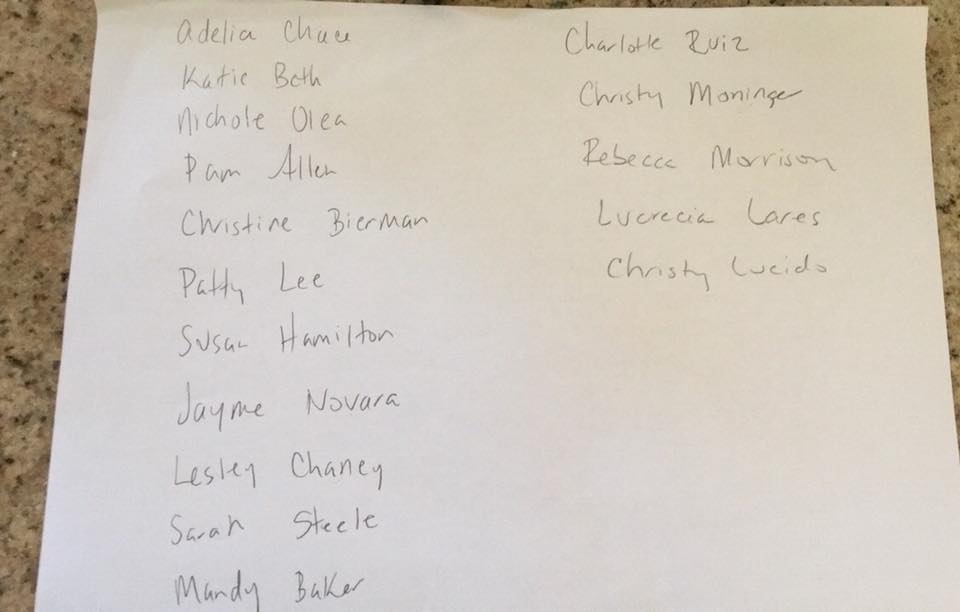 Adelia Chau
Katie Beth
Nichole Olea
Pam Allen
Christine Bierman
Patty Lee
Susan Hamilton
Jayme Novara
Lesley Chaney
Sarah Steele
Mandy Baker
Charlotte Ruiz
Christy Moninger
Rebecca Morrison
Lucrecia Lares
Christy Lucido